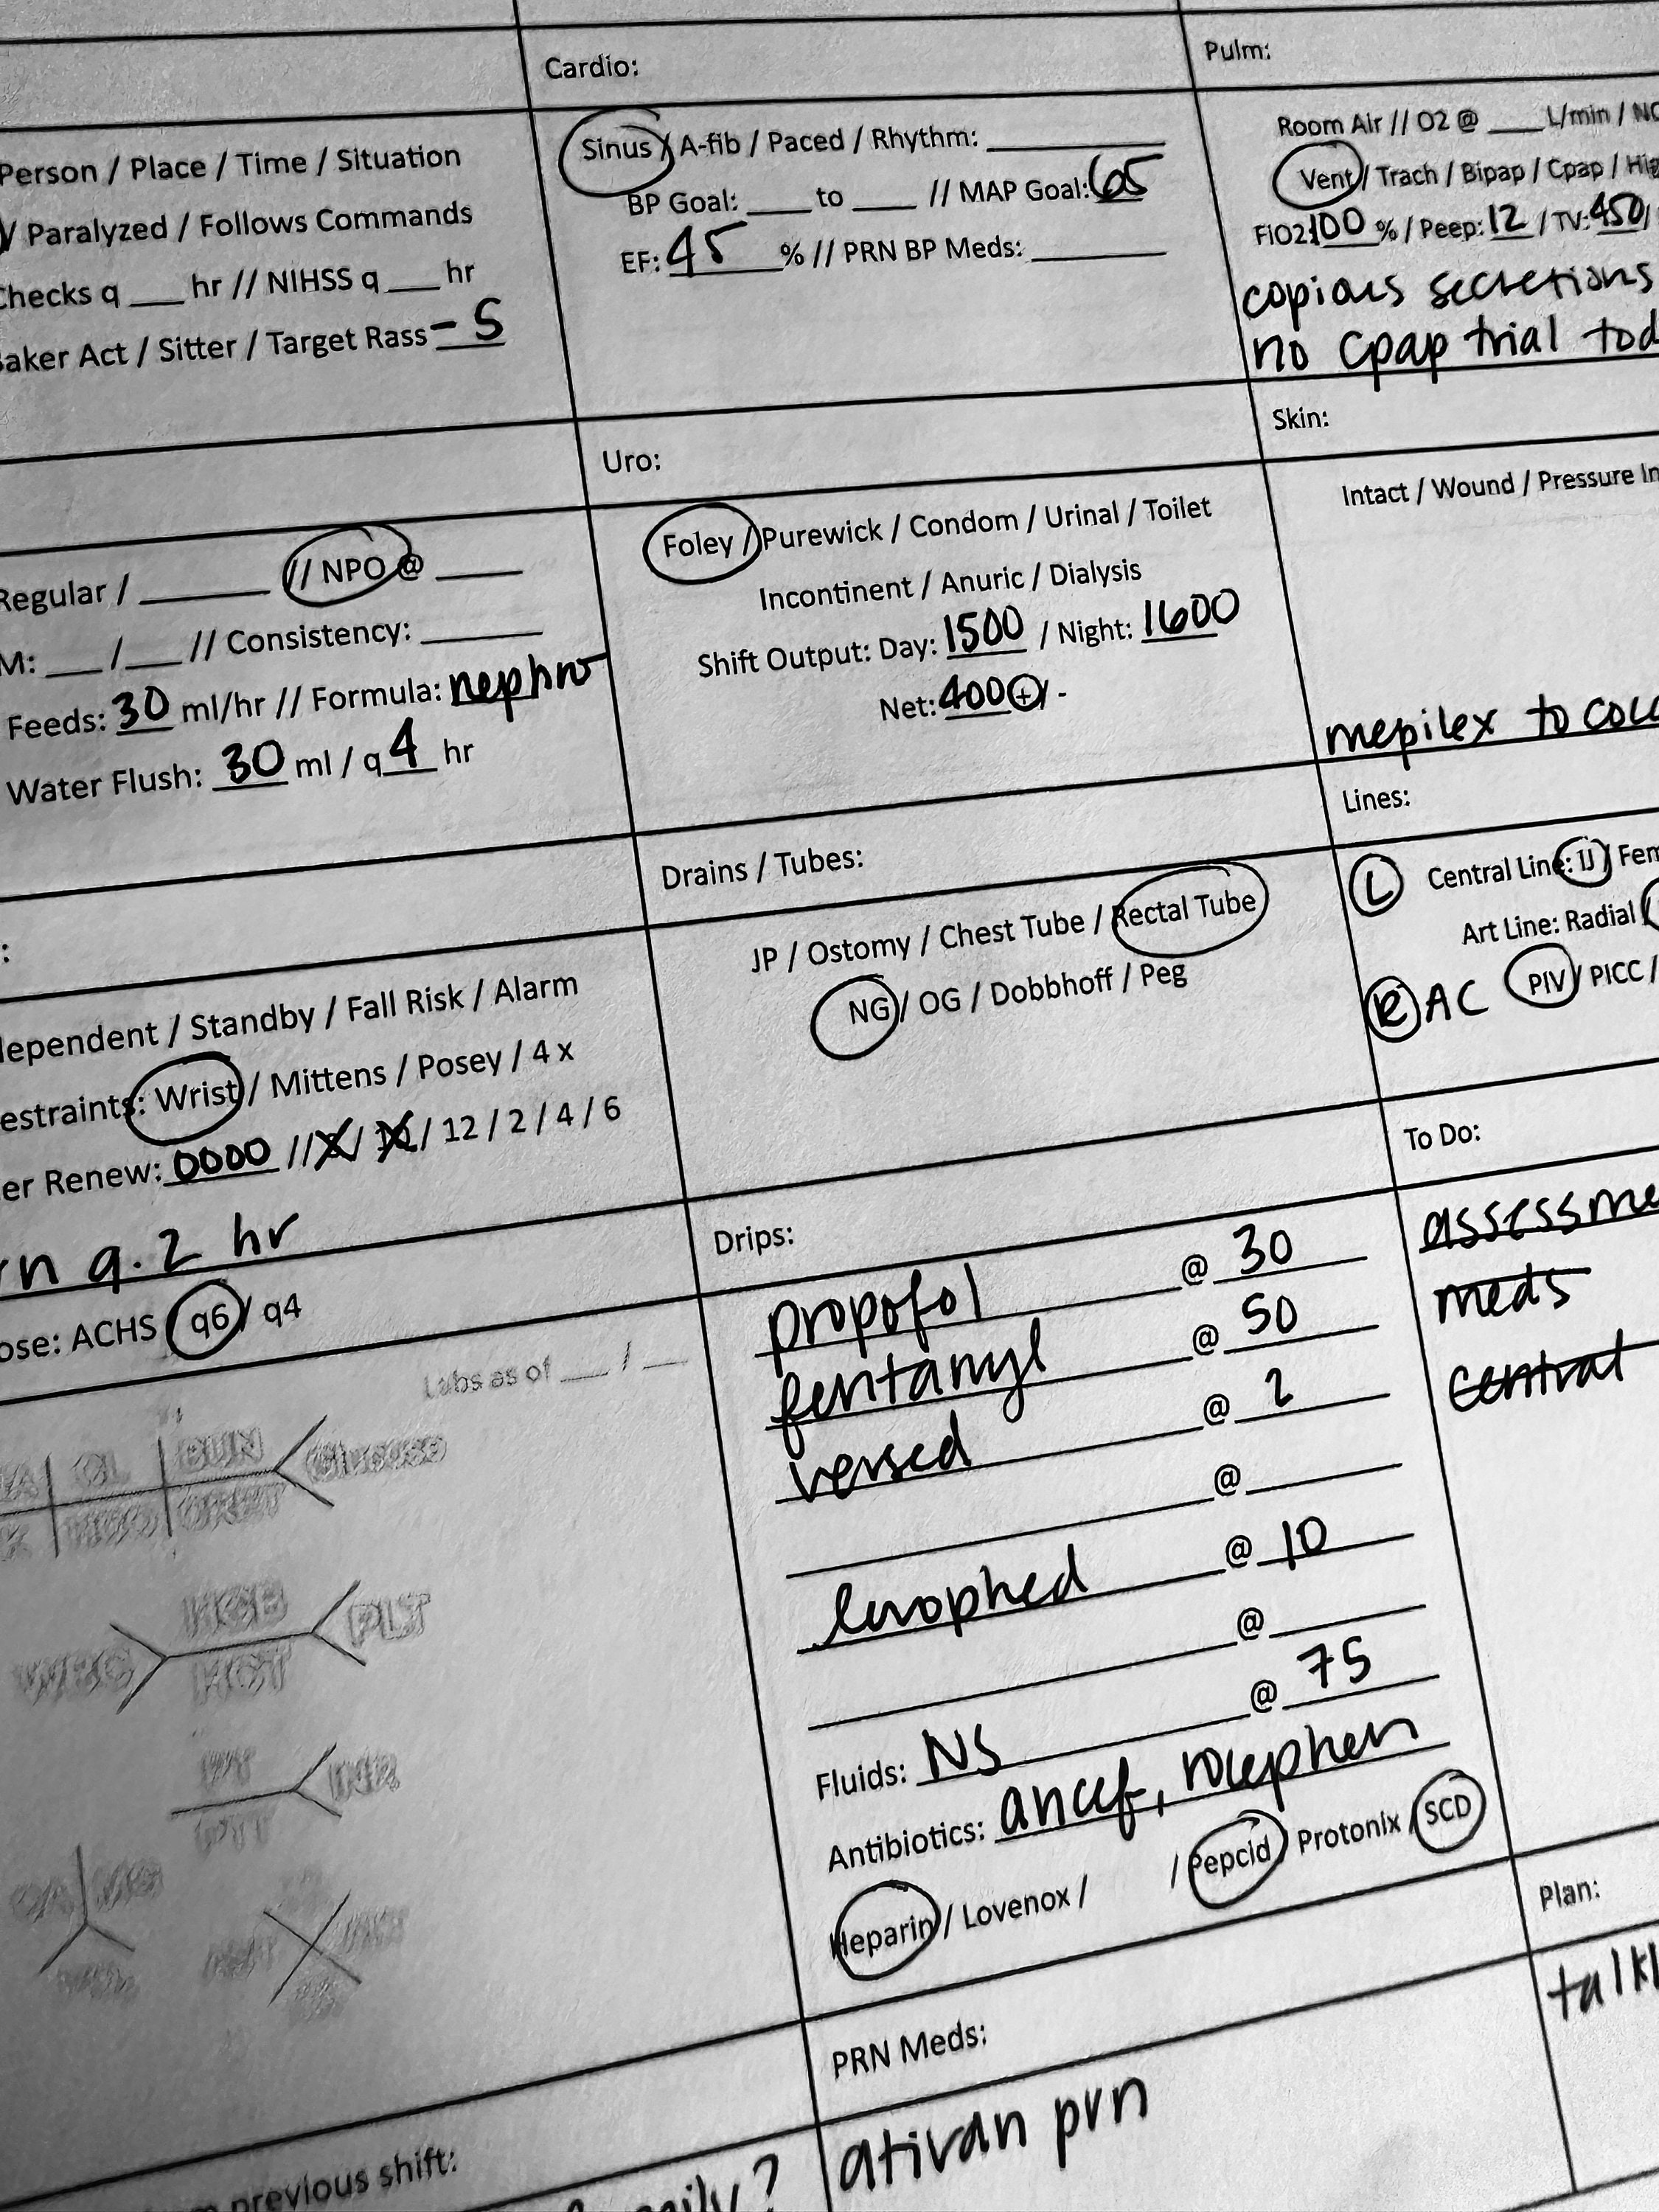 Cardio:
Pulm:
Person / Place / Time / Situation
/ Paralyzed / Follows Commands
Checks q ___ hr // NIHSS q ___ hr
Baker Act / Sitter / Target Rass -5
Sinus / A-fib / Paced / Rhythm: ______
BP Goal: ___ to ___ // MAP Goal: 65
EF: 45 % // PRN BP Meds: ______
Room Air // O2 @ ___ L/min /
Vent / Trach / Bipap / Cpap /
FiO2: 100 % / Peep: 12 / TV: 450 /
copious secretions
no cpap trial
Uro:
Skin:
Regular / ______ // NPO @ ___
M: ___ / ___ // Consistency: ______
Feeds: 30 ml/hr // Formula: nephro
Water Flush: 30 ml / q 4 hr
Foley / Purewick / Condom / Urinal / Toilet
Incontinent / Anuric / Dialysis
Shift Output: Day: 1500 / Night: 1600
Net: 400 + / -
Intact / Wound / Pressure
mepilex to
Drains / Tubes:
Lines:
:
/ Standby / Fall Risk / Alarm
Restraints: Wrist / Mittens / Posey / 4 x
Renew: 0000 // 8 / 10 / 12 / 2 / 4 / 6
q. 2 hr
JP / Ostomy / Chest Tube / Rectal Tube
NG / OG / Dobbhoff / Peg
L Central Line: IJ /
Art Line: Radial /
R AC PIV / PICC /
ACHS / q6 / q4
Labs as of ___ / ___
CL BUN Glucose
K HCO CREAT
WBC HGB PLT
HCT
PT INR
PTT
Drips:
propofol @ 30
fentanyl @ 50
versed @ 2
______ @ ___
levophed @ 10
______ @ ___
Fluids: NS @ 75
Antibiotics: ancef, rocephin
Heparin / Lovenox / / Pepcid / Protonix / SCD
To Do:
meds
central
PRN Meds:
ativan prn
Plan:
previous shift: